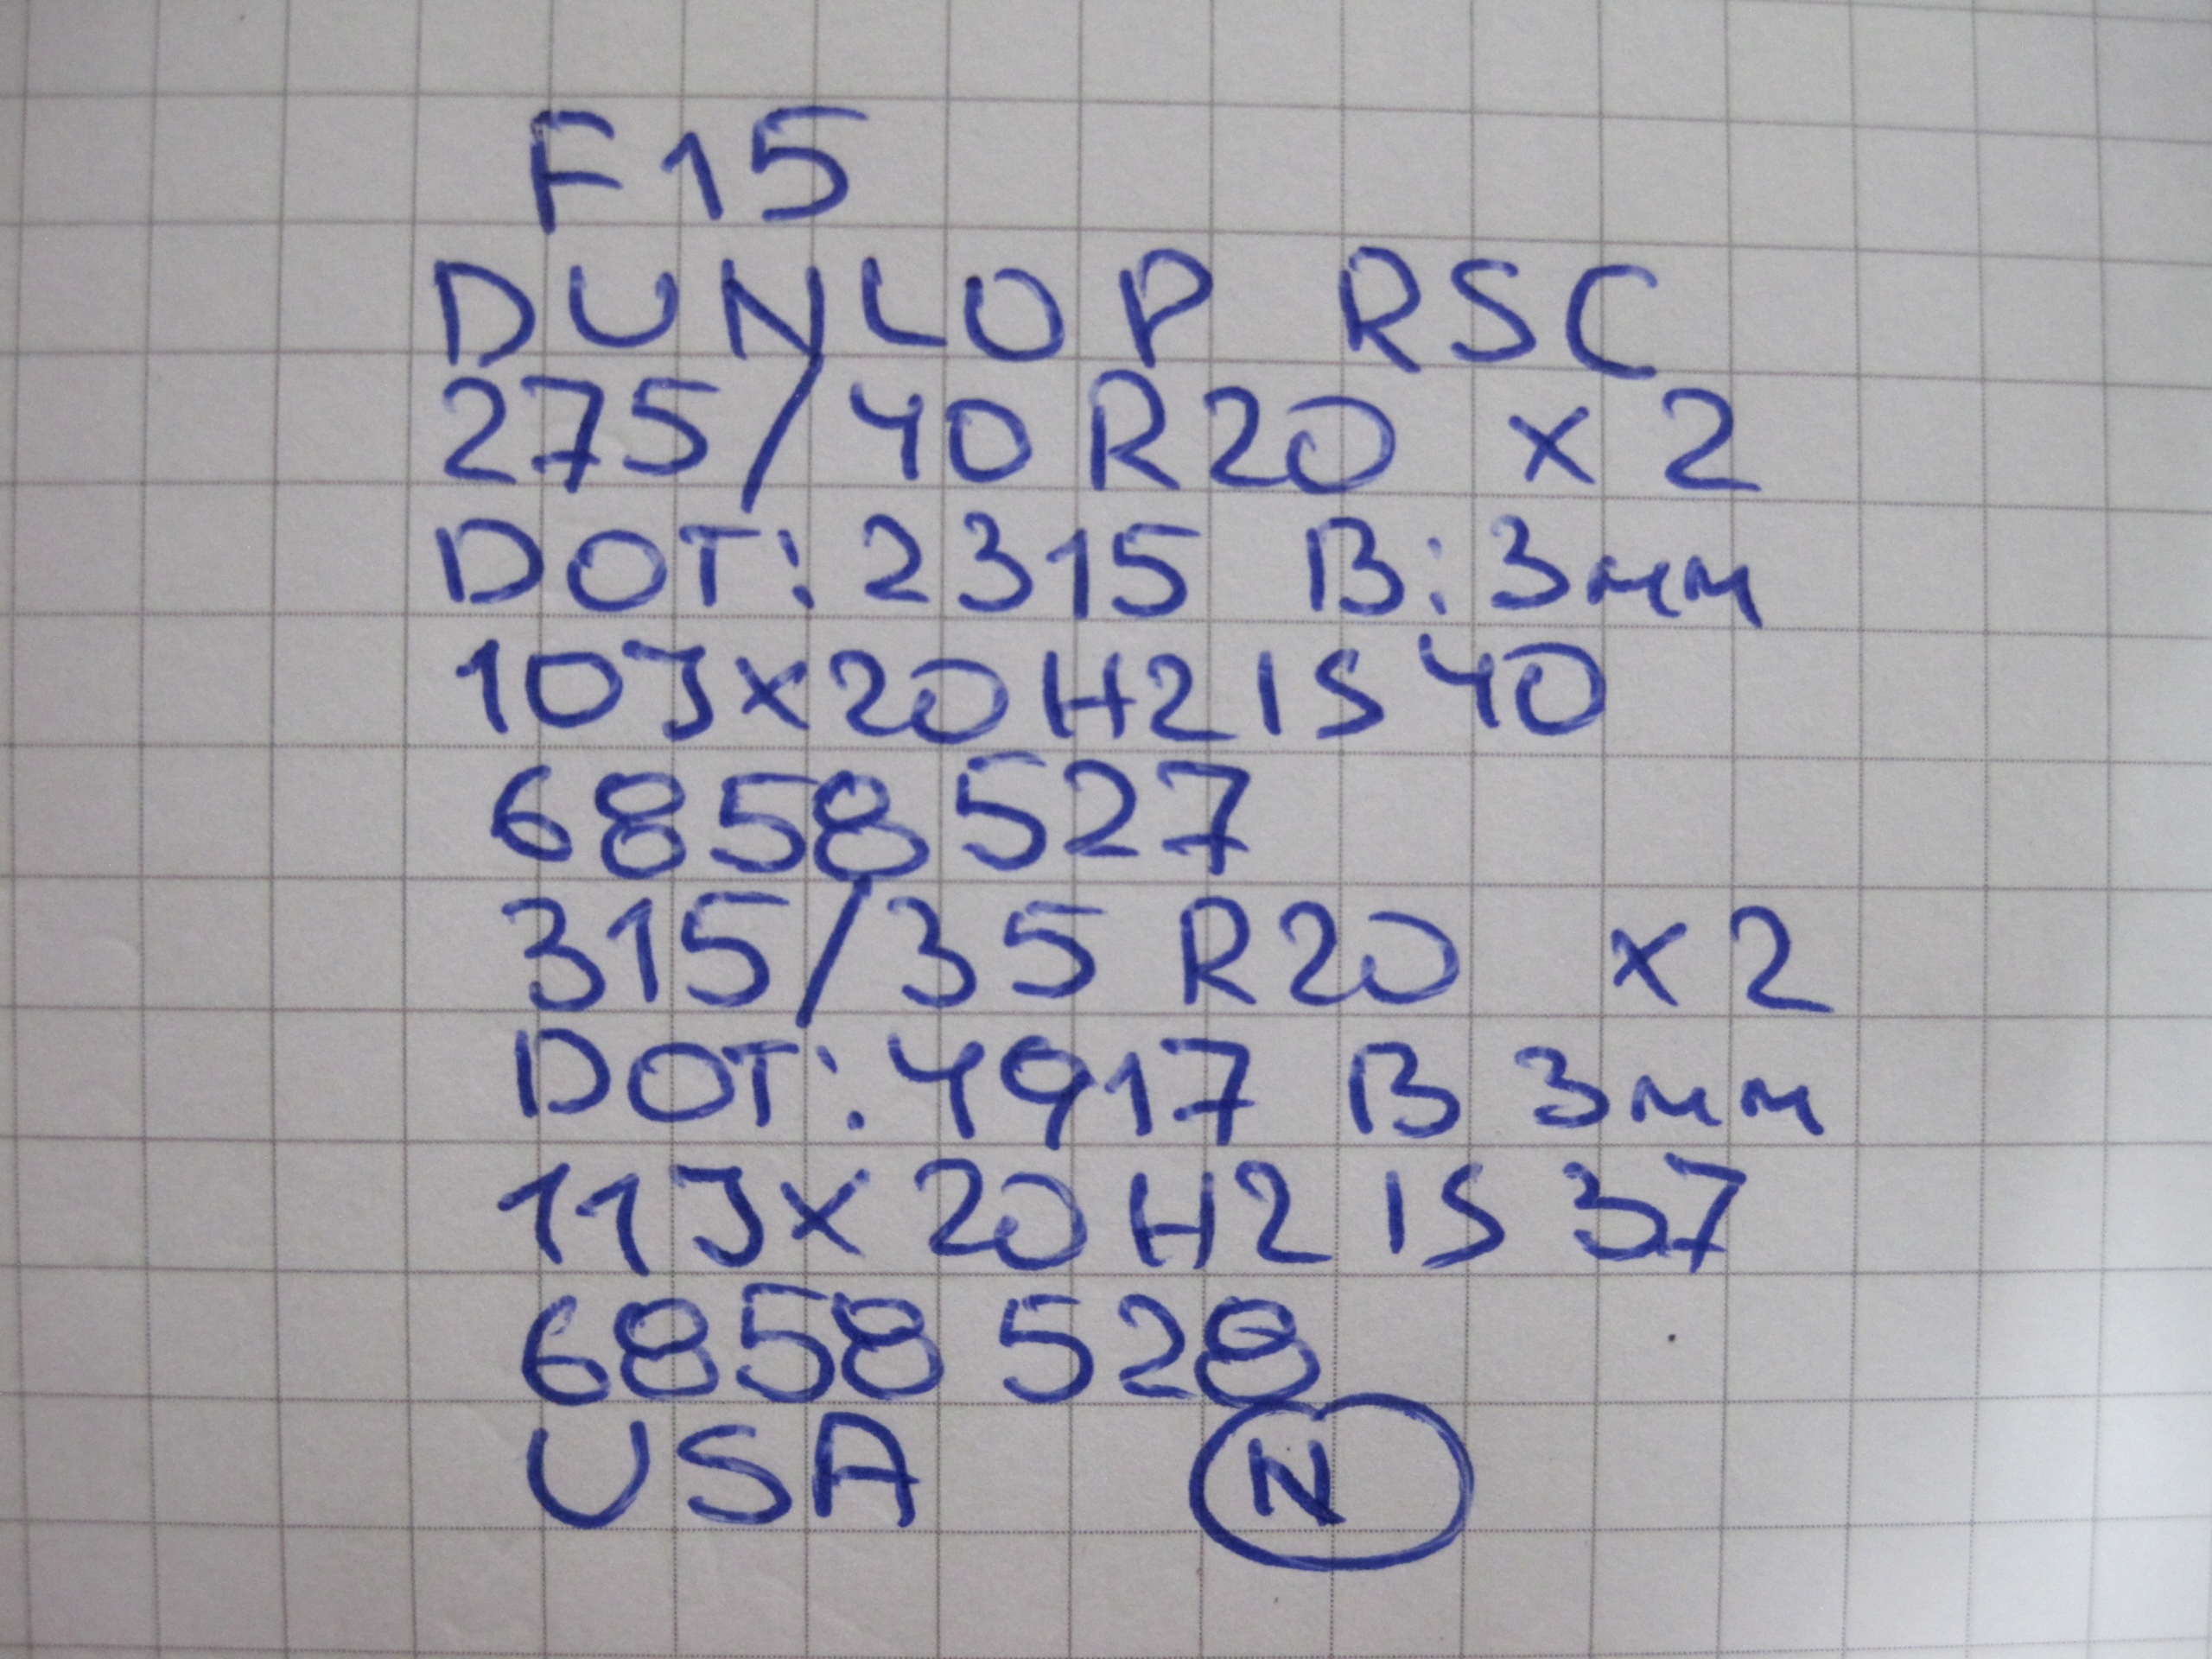 F15
DUNLOP RSC
275/40 R20 x 2
DOT: 2315 B: 3мм
10Jx20 H2 IS 40
6858 527
315/35 R20 x 2
DOT: 4917 B 3мм
11Jx20 H2 IS 37
6858 528
USA N